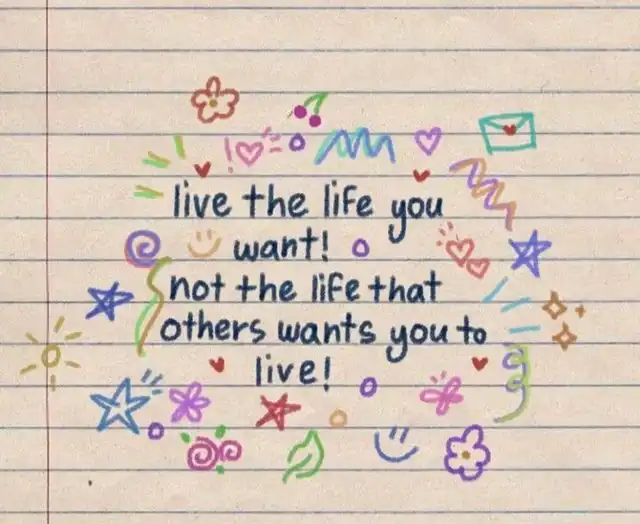 live the life you
want!
not the life that
others wants you to
live!